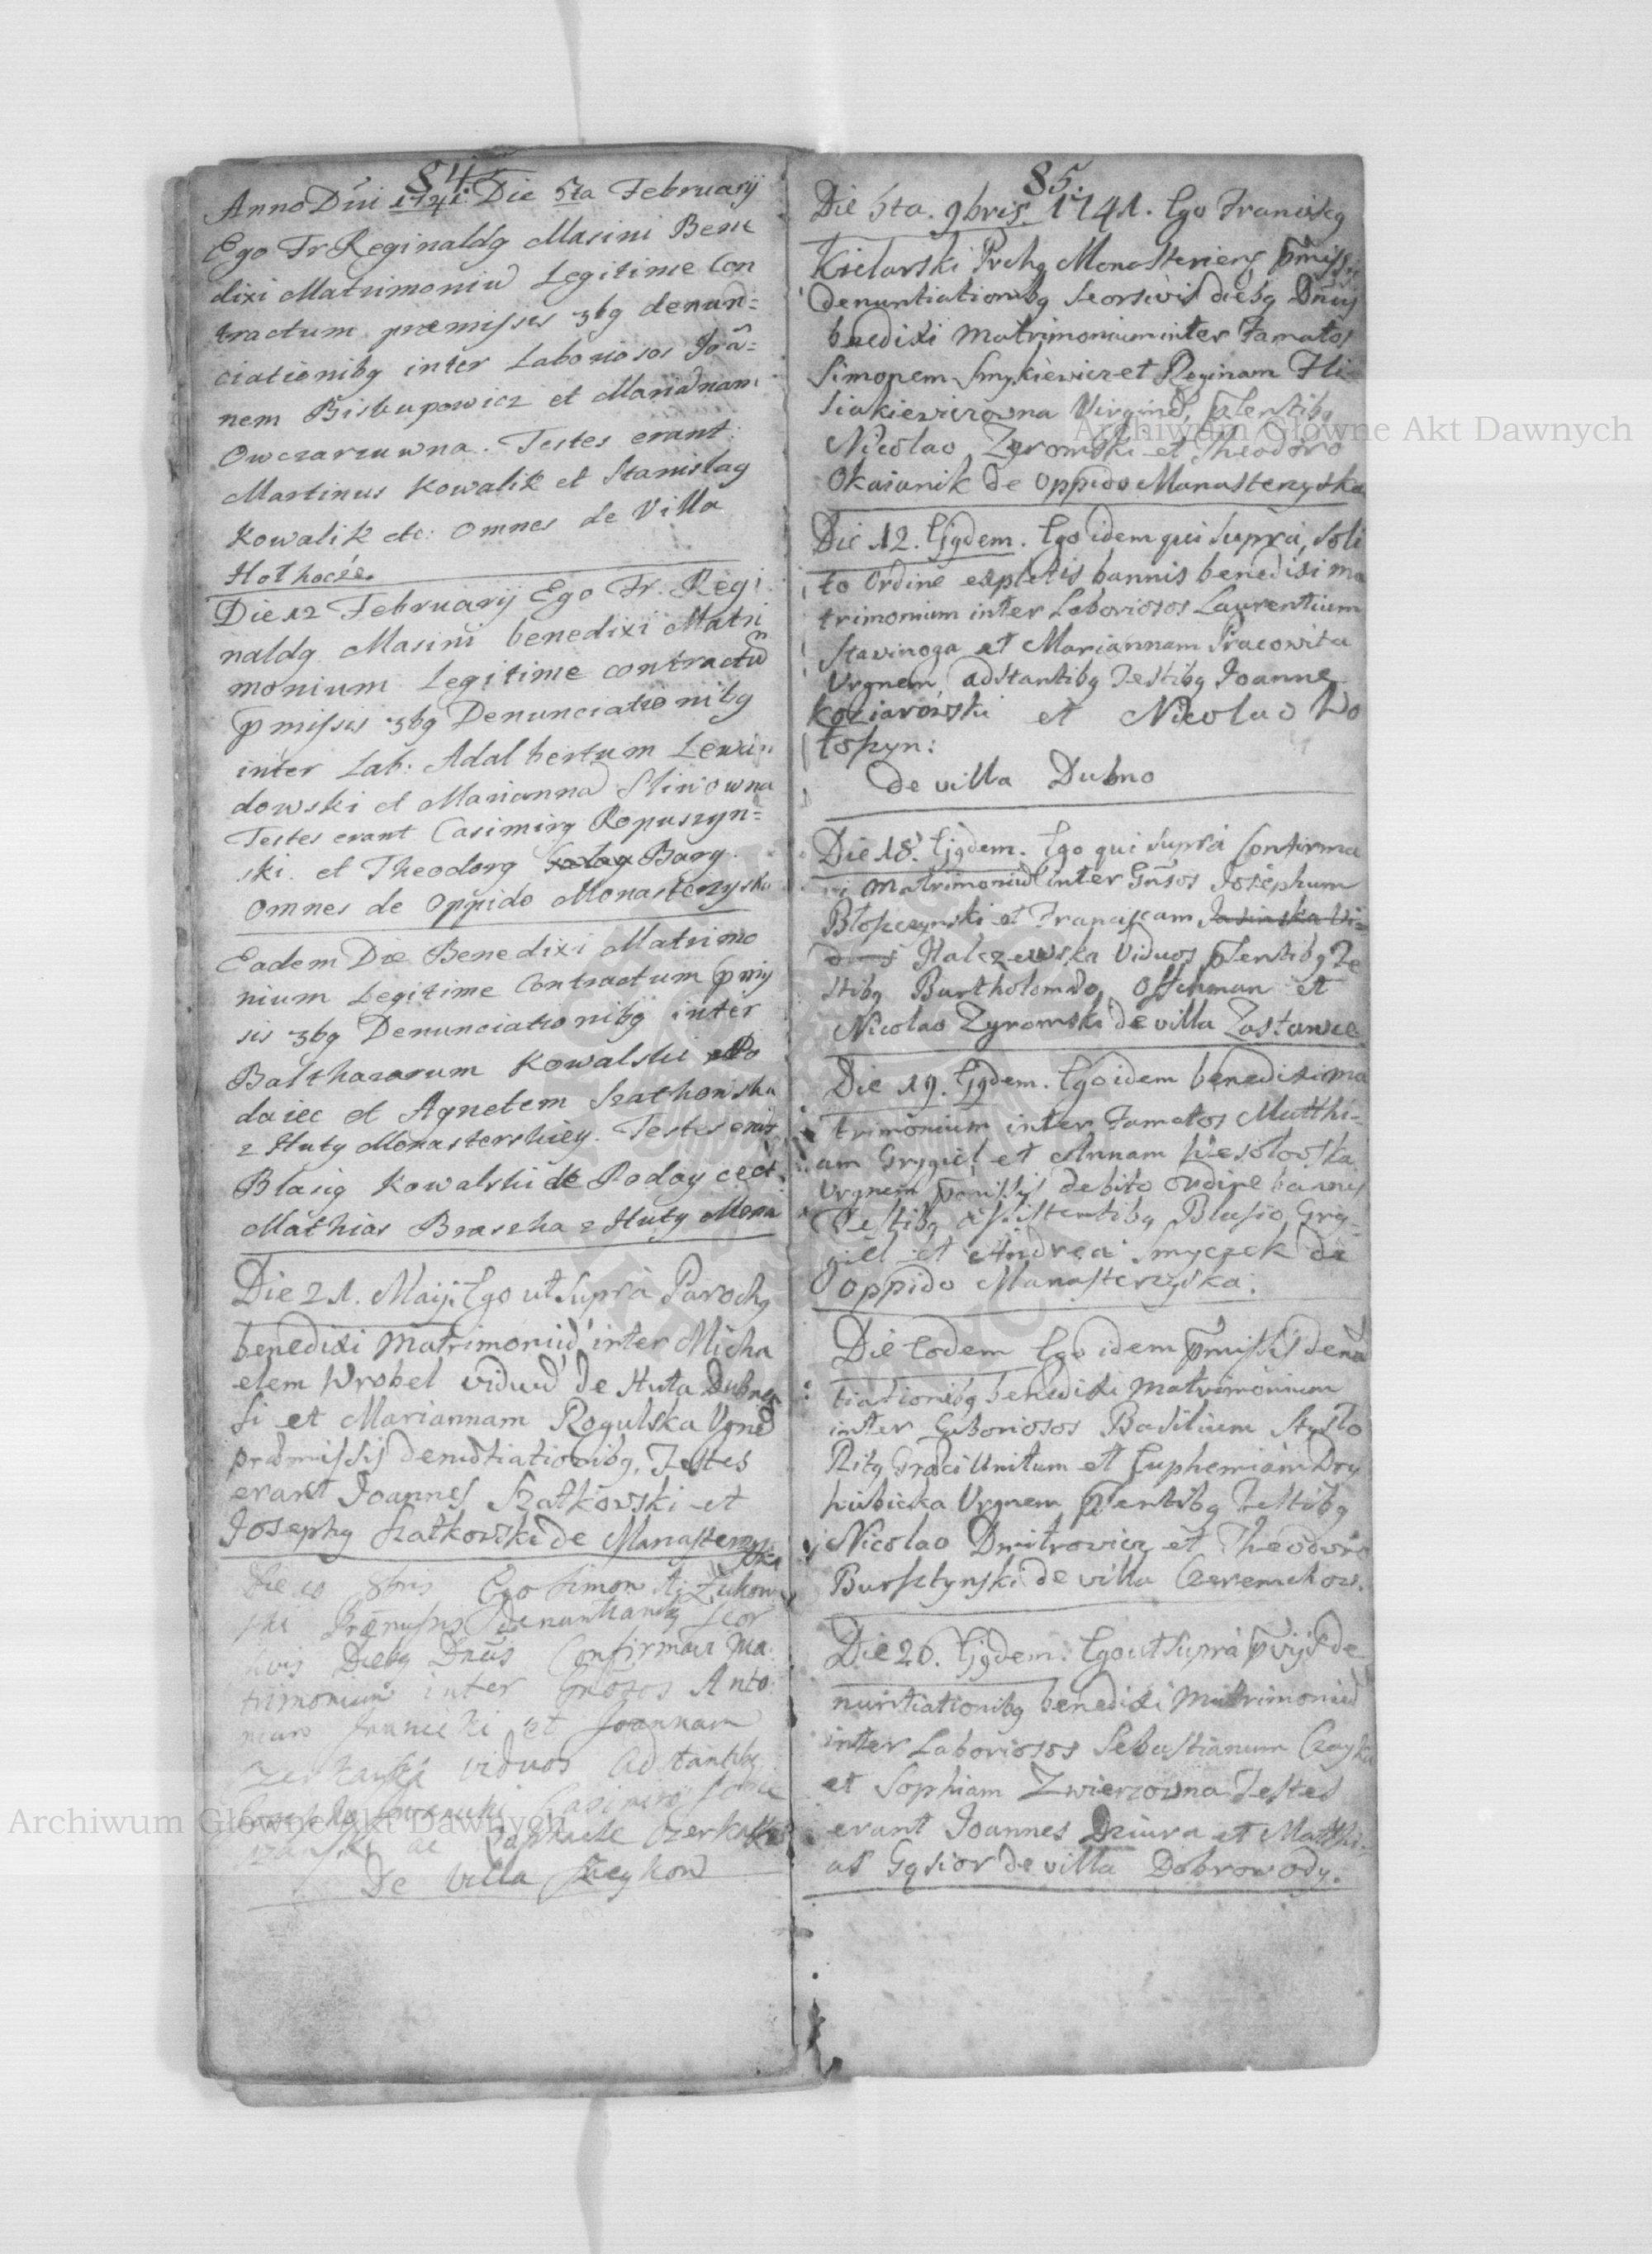 84.
Anno Dni 1741. Die 5ta Februarij
Ego Fr Reginaldg Masini Bene
dixi Matrimoniū Legitime Con
tractum præmissis 3bg denun=
ciationibg inter Laboriosos Joā=
nem Biskupowicz et Mariānam
Owczarzuwna. Testes erant:
Martinus Kowalik et Stanislag
Kowalik etc: omnes de Villa
Hothocże.
Die 12 Februarij Ego Fr. Regi
naldg Masini benedixi Matri
monium Legitime contractū
pmissis 3bg Denunciationibg
inter Lab: Adalbertum Lewan
dowski et Marianna Sliwowna
Testes erant Casimirg Ropuszyn=
ski et Theodorg Barg.
Omnes de Oppido Monasterzyska
Eadem Die Benedixi Matrimo
nium Legitime Contractum pmis
sis 3bg Denunciationibg inter
Balthazarum Kowalski Po
daiec et Agnetem Szatkowska
z Huty Monasterskiey. Testes erāt
Blasig Kowalski de Poday cect.
Mathias Braszka z Huty Mona
Die 21. Maij. Ego ut Suprà Parochg
benedixi Matrimoniū inter Micha
elem Wrobel viduū de Huta Dubnen
si et Mariannam Rogulska Vgnē
præmissis denūtiationibg. Testes
erant Joannes Szatkowski et
Josephg Szatkowski de Manasterzy
ska
Die 10 8bris Ego Simon Żukow
ski Præmissis denuntianbg seor
sivis Diebg Dnīs Confirmavi Ma
trimonium inter Gnosos Anto
nium et Joannam
viduos Adstantibg
Casimiro
ac Raphaele Czerka
De Villa

85.
Die 5ta. 9bris. 1741. Ego Franciscg
Kielarski Prchg Monasteriens pmiss.
denuntiationibg seorsivis diebg Dnīs
benedixi matrimonium inter Famatos
Simonem Smykiewicz et Reginam Ili
siakiewiczowna Virginē, pserttibg
Nicolao Zyromski et Theodoro
Okaianik de oppido Manasterzyska
Die 12. Ejgdem. Ego idem qui suprà, soli
to ordine expletis bannis benedixi ma
trimonium inter Laboriosos Laurentium
Stavinoga et Mariannam Pracowita
Vrgnem, adstantibg Testibg Joanne
Koziarowski et Nicolao Wo
toszyn:
de villa Dubno
Die 18. Ejgdem. Ego qui suprà confirma
vi matrimoniū inter Gnsos Josephum
Błopczynski et Franciscam Jasinska Vi=
duos Halczewska Viduos pserttibg Te
stibg Bartholomæo Offenman et
Nicolao Zyromski de villa Zastawie.
Die 19. Ejgdem. Ego idem benedixi ma
trimonium inter Famatos Matthi=
am Grygiel et Annam Wesołowska
Vrgnem pmissis debito ordine bannis
Testibg assistentibg Blasio Gry=
giel et Andrea Smyczek de
Oppido Manasterzyska.
Die Eodem Ego idem pmissis denū
tiationibg benedixi matrimonium
inter Laboriosos Basilium Stysło
Ritg Græci Unitum et Euphemiam Dry
hubicka Vrgnem pserttibg Testibg
Nicolao Dmitrowicz et Theodoro
Bursztynski de villa Czeremchow.
Die 26. Ejgdem. Ego ut suprà pvijs de
nuntiationibg benedixi Matrimoniū
inter Laboriosos Sebastianum Czayka
et Sophiam Zwierzowna Testes
erant Joannes Dziura et Matthi=
as Gąsior de villa Dobrowody.
Archiwum Główne Akt Dawnych
Archiwum Główne Akt Dawnych